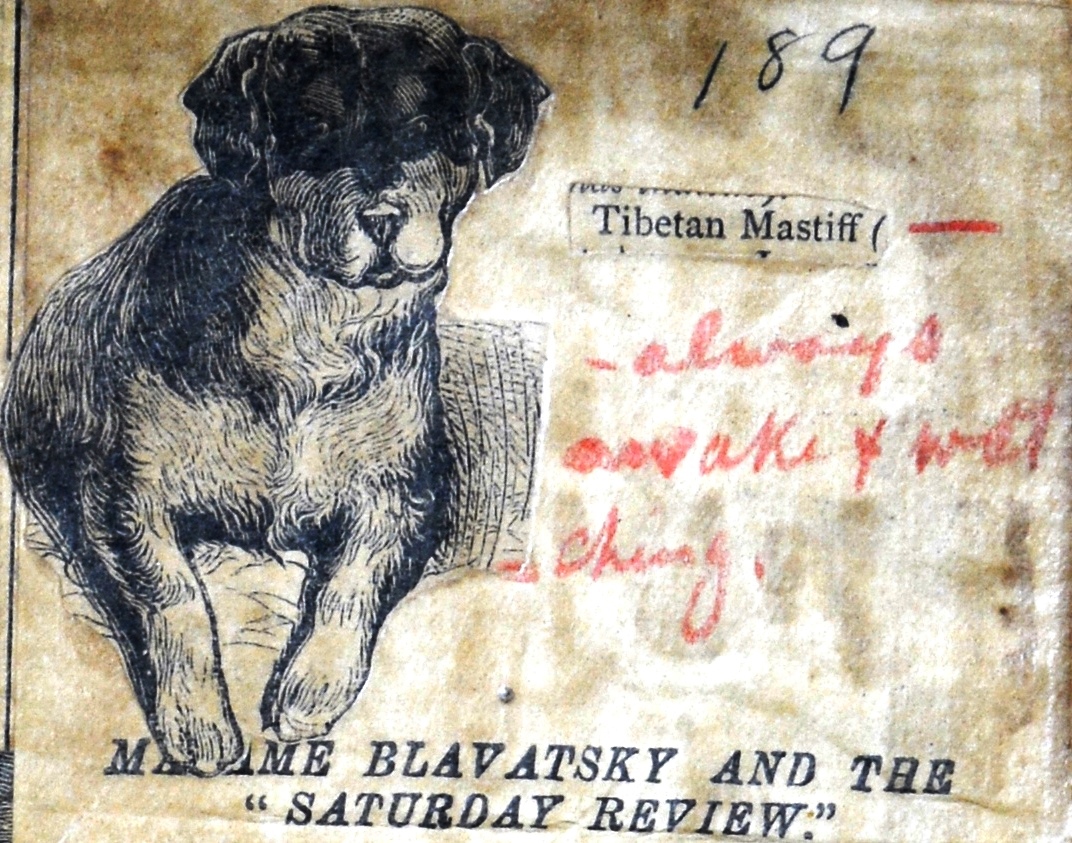 189
Tibetan Mastiff ( —
- always
awake & wat
- ching.
MADAME BLAVATSKY AND THE
“SATURDAY REVIEW.”